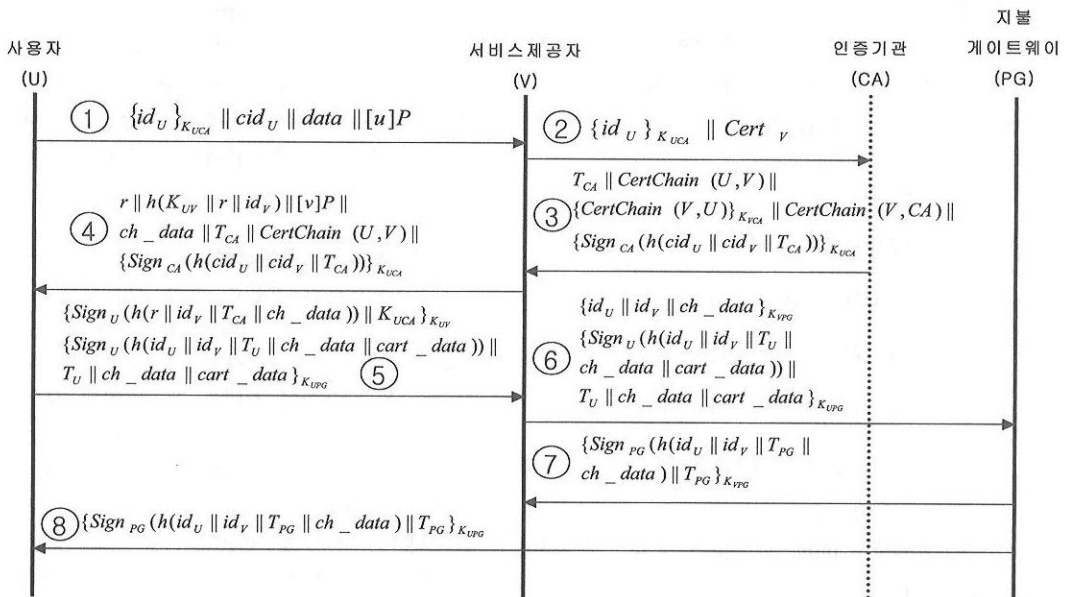 지불
사용자 서비스제공자 인증기관 게이트웨이
(U) (V) (CA) (PG)
① {id_U}_{K_{UCA}} || cid_U || data || [u]P
② {id_U}_{K_{UCA}} || Cert_V
T_{CA} || CertChain (U,V) ||
③ {CertChain (V,U)}_{K_{VCA}} || CertChain (V,CA) ||
{Sign_{CA}(h(cid_U || cid_V || T_{CA}))}_{K_{UCA}}
r || h(K_{UV} || r || id_V) || [v]P ||
④ ch_data || T_{CA} || CertChain (U,V) ||
{Sign_{CA}(h(cid_U || cid_V || T_{CA}))}_{K_{UCA}}
{Sign_U(h(r || id_V || T_{CA} || ch_data)) || K_{UCA}}_{K_{UV}}
{Sign_U(h(id_U || id_V || T_U || ch_data || cart_data)) ||
T_U || ch_data || cart_data}_{K_{UPG}} ⑤
{id_U || id_V || ch_data}_{K_{VPG}}
{Sign_U(h(id_U || id_V || T_U ||
⑥ ch_data || cart_data)) ||
T_U || ch_data || cart_data}_{K_{UPG}}
{Sign_{PG}(h(id_U || id_V || T_{PG} ||
⑦ ch_data) || T_{PG}}_{K_{VPG}}
⑧ {Sign_{PG}(h(id_U || id_V || T_{PG} || ch_data) || T_{PG}}_{K_{UPG}}